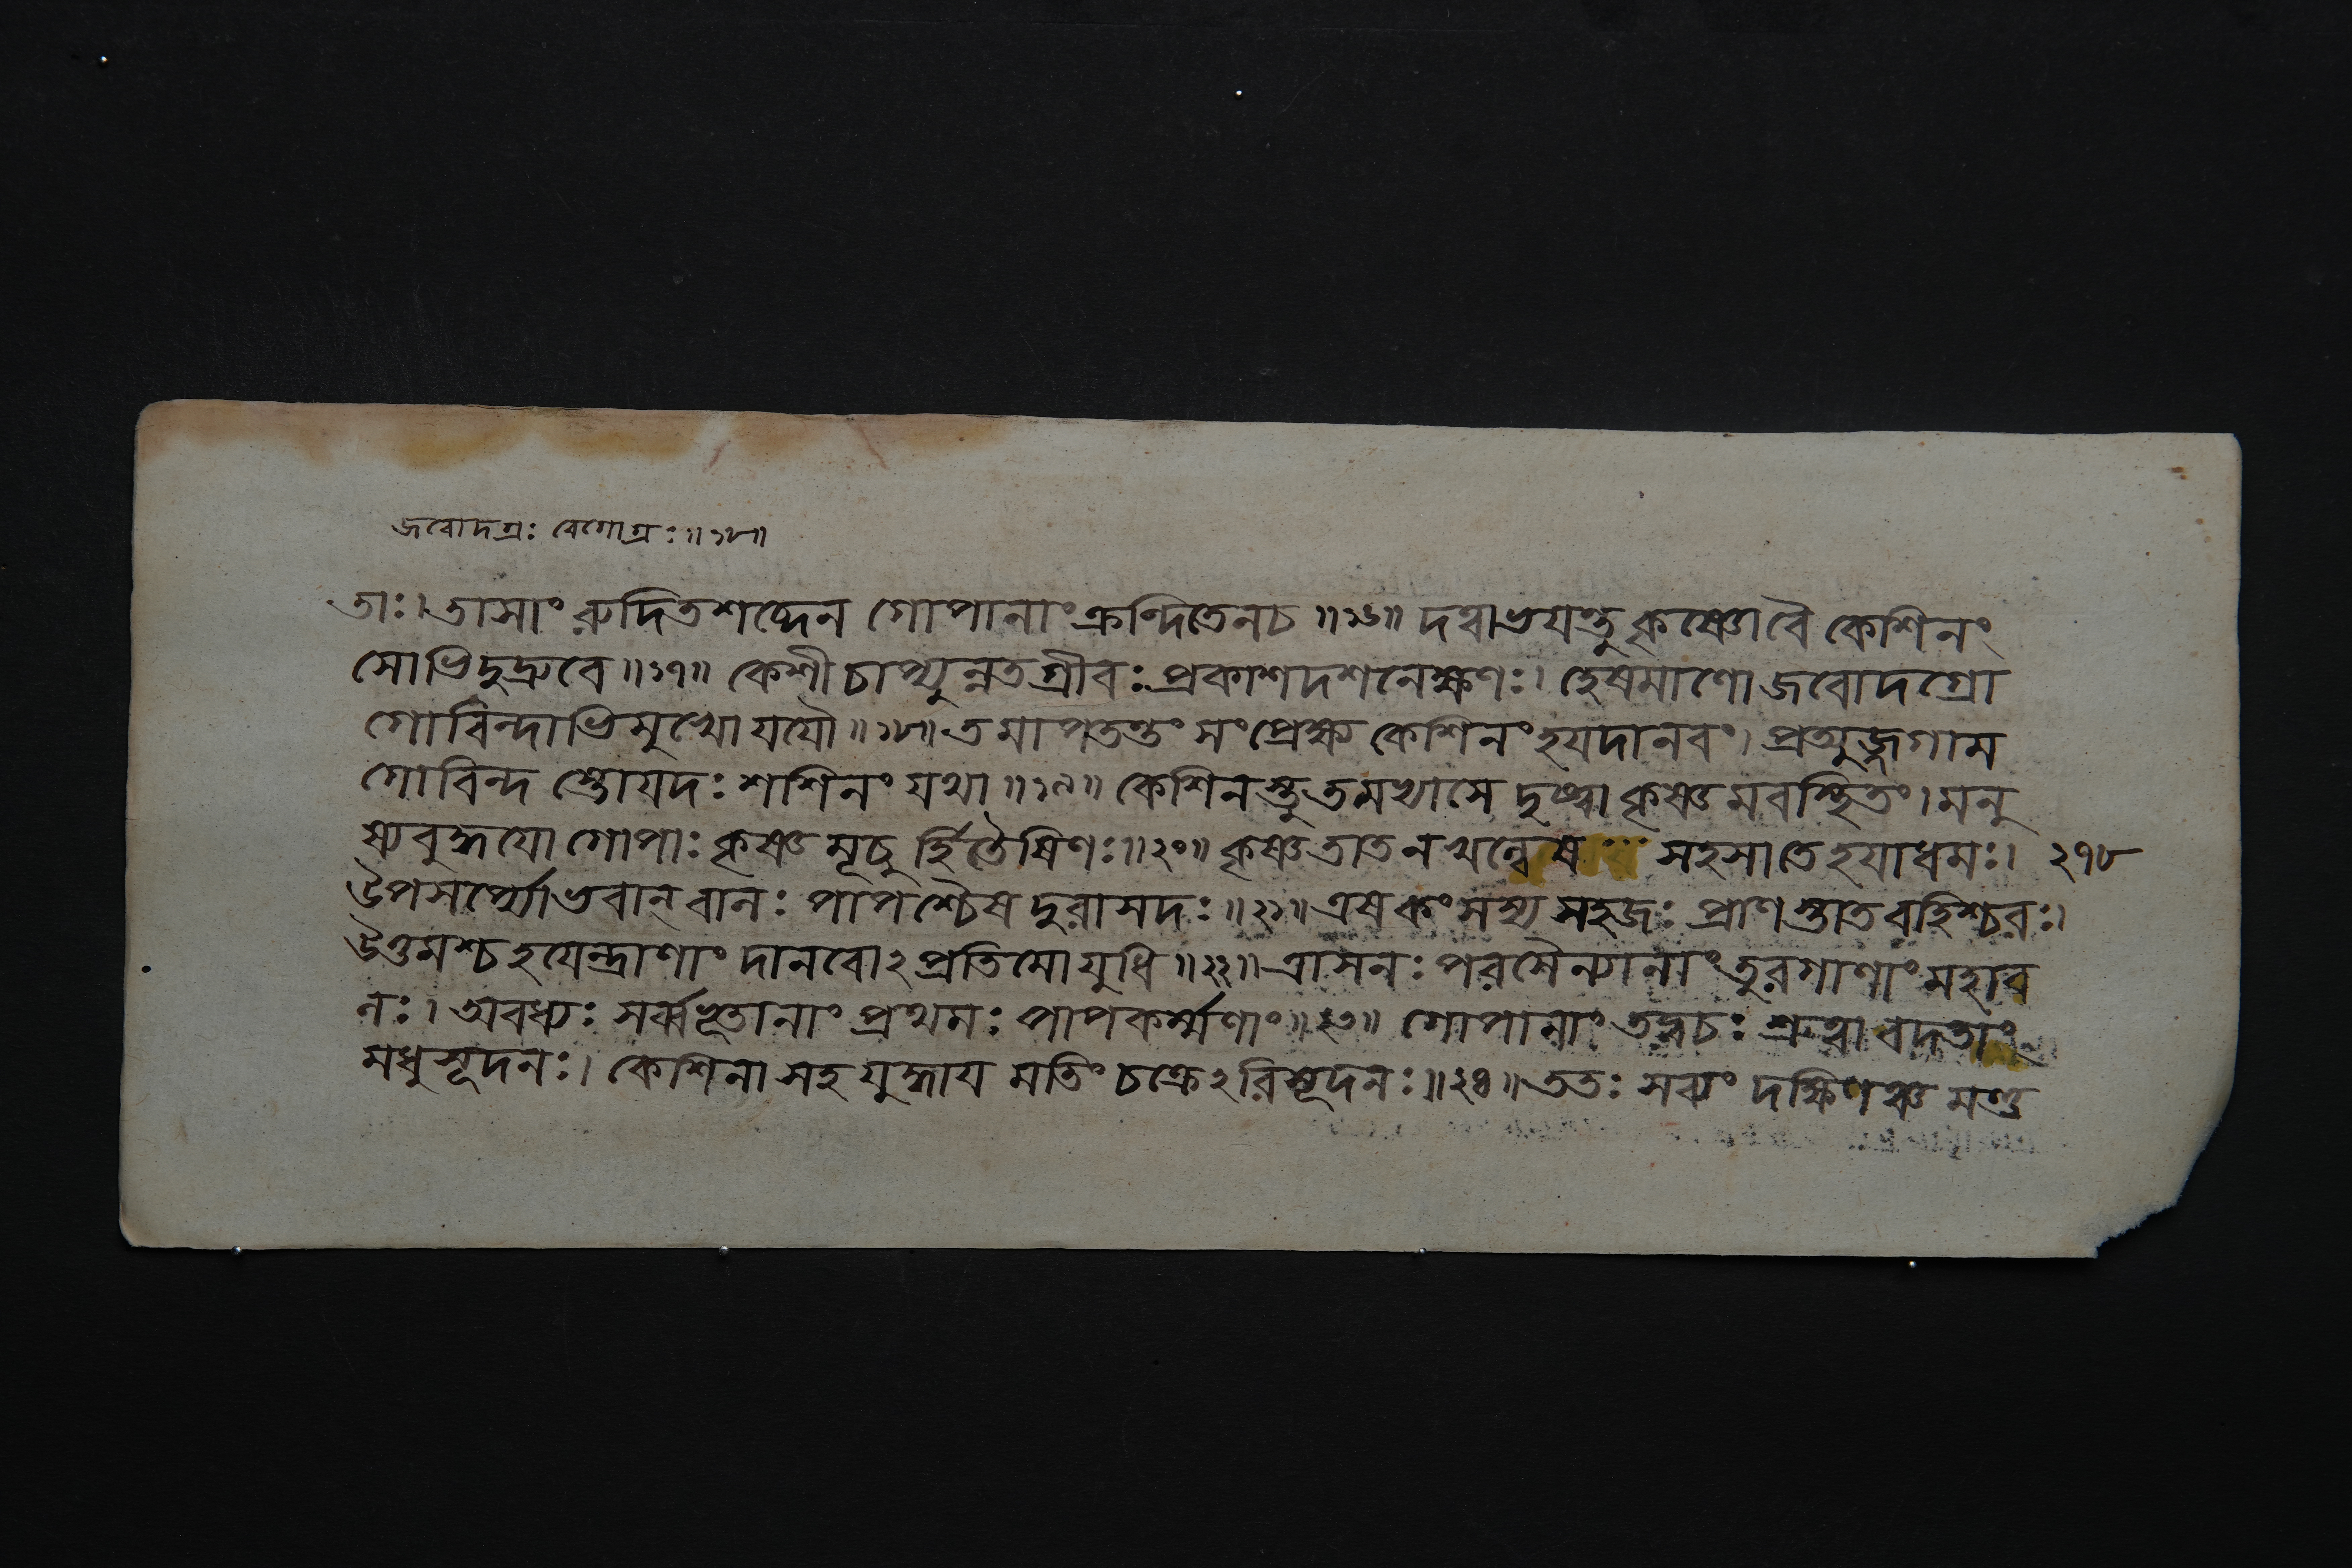 জবোদগ্রঃ বেগোগ্রঃ॥১৮॥
তাঃ। তাসাং রুদিতশব্দেন গোপানাং ক্রন্দিতেনচ॥১৬॥ দত্বাভয়ন্তু কৃষ্ণোবৈ কেশিনং
সোভিদুদ্রুবে॥১৭॥ কেশী চাপ্যুন্নতগ্রীবঃ প্রকাশদশনেক্ষণঃ। হেষমাণো জবোদগ্রো
গোবিন্দাভিমুখো যযৌ॥১৮॥ তমাপতন্তং সংপ্রেক্ষ্য কেশিনং হয়দানবং। প্রত্যুজ্জগাম
গোবিন্দ স্তোয়দঃ শশিনং যথা॥১৯॥ কেশিনস্তু তমভ্যাসে দৃষ্ট্বা কৃষ্ণমবস্থিতং। মনু
ষ্যবুদ্ধয়ো গোপাঃ কৃষ্ণ মূচু র্হিতৈষিণঃ॥২০॥ কৃষ্ণ তাত নখল্বেষ সহসা তে হয়াধমঃ। ২৭৮
উপসর্প্যো ভবান্ বালঃ পাপশ্চৈষ দুরাসদঃ॥২১॥ এষ কংসস্য সহজঃ প্রাণ স্তাত বহিশ্চরঃ।
উত্তমশ্চ হয়েন্দ্রাণাং দানবোঽপ্রতিমো যুধি॥২২॥ ত্রাসনঃ পরসৈন্যানাং তুরগাণাং মহাব
লঃ। অবধ্যঃ সর্ব্বভূতানাং প্রথমঃ পাপকর্ম্মণাং॥২৩॥ গোপানাং তদ্বচঃ শ্রুত্বা বদতাং
মধুসূদনঃ। কেশিনা সহ যুদ্ধায় মতিং চক্রেঽরিসূদনঃ॥২৪॥ ততঃ সব্যং দক্ষিণঞ্চ মণ্ড